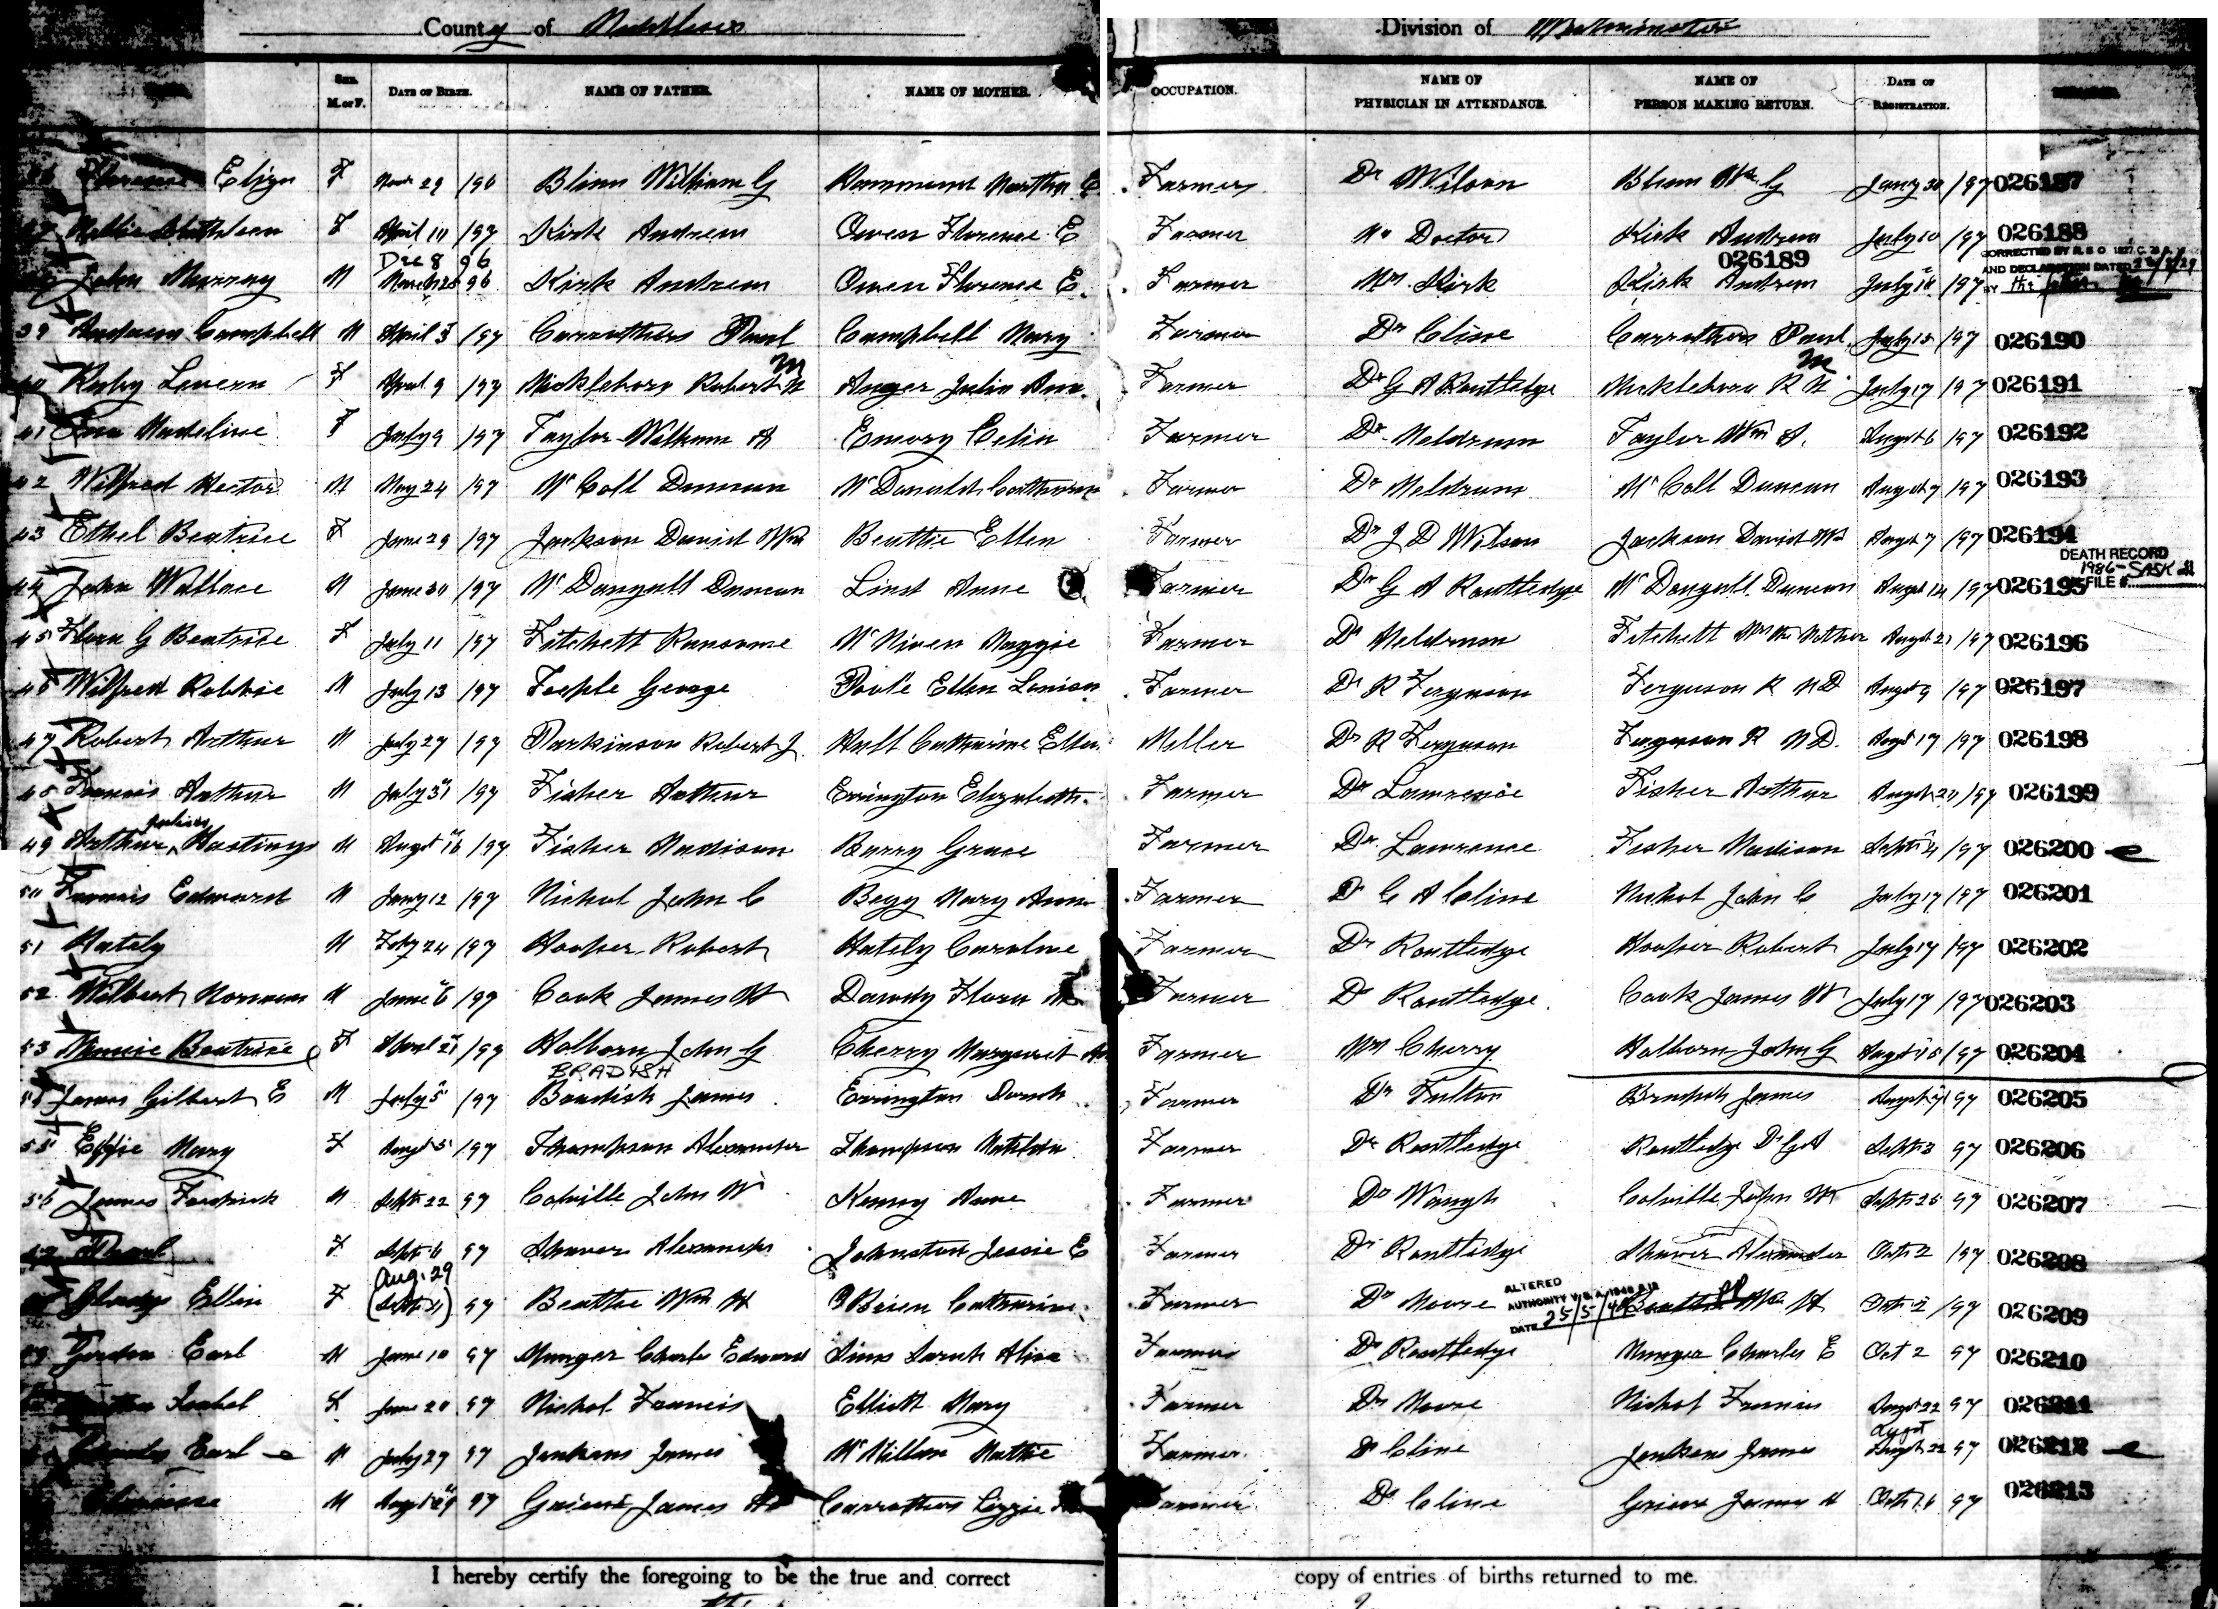 County of Middlesex Division of Westminster
SEX. M. or F. DATE OF BIRTH. NAME OF FATHER. NAME OF MOTHER. OCCUPATION. NAME OF PHYSICIAN IN ATTENDANCE. NAME OF PERSON MAKING RETURN. DATE OF REGISTRATION.
Florence Eliza F Nov 29 /96 Blinn William G Hammond Martha E Farmer Dr Wilson Blinn Wm G Jany 30 /97 026187
Nellie Kathleen F April 10 /97 Kirk Andrew Owen Florence E Farmer No Doctor Kirk Andrew July 10 /97 026188
Dec 8 96 026189 CORRECTED BY R.S.O. 1927, C. 78
John Murray M March 28 96 Kirk Andrew Owen Florence E. Farmer Mrs. Kirk Kirk Andrew July 10 /97 AND DECLARATION DATED
39 Andrew Campbell M April 3 /97 Carrothers Paul Campbell Mary Farmer Dr Cline Carrothers Paul July 15 /97 026190
40 Ruby Lavern F April 9 /97 Mickleboro Robert M Anger Julia Ann Farmer Dr G A Routledge Mickleboro R M July 17 /97 026191
41 Madeline F July 9 /97 Taylor William A Emory Celia Farmer Dr Meldrum Taylor Wm A. Augst 6 /97 026192
42 Wilfred Hector M May 24 /97 McColl Duncan McDonald Catharine Farmer Dr Meldrum McColl Duncan Augst 7 /97 026193
43 Ethel Beatrice F June 29 /97 Jackson David Wm Beattie Ellen Farmer Dr J D Wilson Jackson David Wm Augst 7 /97 026194
DEATH RECORD 1986-SASK
44 John Wallace M June 30 /97 McDougall Duncan Lind Anne Farmer Dr G A Routledge McDougall Duncan Augst 14 /97 026195 FILE #
45 Flora G Beatrice F July 11 /97 Fitchett Ransome McNiven Maggie Farmer Dr Meldrum Fitchett Mrs the Mother Augst 21 /97 026196
46 Wilfred Robbie M July 13 /97 Topple George Poole Ellen Louisa Farmer Dr R Ferguson Ferguson R MD Augst 9 /97 026197
47 Robert Arthur M July 27 /97 Parkinson Robert J Hall Catharine Ellen Miller Dr R Ferguson Ferguson R MD. Augst 17 /97 026198
48 Francis Arthur M July 31 /97 Fisher Arthur Errington Elizabeth Farmer Dr Lawrence Fisher Arthur Augst 20 /97 026199
49 Arthur Hastings M Augst 16 /97 Fisher Madison Barry Grace Farmer Dr. Lawrence Fisher Madison Septr 4 /97 026200
50 Francis Edward M Jany 12 /97 Nichol John C Begg Mary Ann Farmer Dr C A Cline Nichol John C July 17 /97 026201
51 Hately M Feby 24 /97 Hooper Robert Hately Caroline Farmer Dr Routledge Hooper Robert July 17 /97 026202
52 Wilbert Norman M June 6 /97 Cook James W Dawdy Flora M Farmer Dr Routledge Cook James W July 17 /97 026203
53 Minnie Beatrice F April 21 /97 Holborn John G Cherry Margaret Farmer Mrs Cherry Holborn John G Augst 15 /97 026204
BRADISH
54 James Gilbert E M July 5 /97 Bradish James Errington Sarah Farmer Dr Fulton Bradish James Augst 97 026205
55 Effie Mary F Augst 5 /97 Thompson Alexander Thompson Matilda Farmer Dr Routledge Routledge Dr GA Septr 3 97 026206
56 James Fredrick M Septr 22 97 Colville John W Kenny Anne Farmer Dr Waugh Colville John W Septr 25 97 026207
57 Pearl F Septr 6 97 Shaver Alexander Johnston Jessie E Farmer Dr Routledge Shaver Alexander Octr 2 /97 026208
Aug. 29 ALTERED
Gladys Ellin F (Septr 11) 97 Beattie Wm H OBrien Catharine Farmer Dr Moore AUTHORITY Beattie Wm H Octr 2 /97 026209
DATE 25/5/48
59 Gordon Earl M June 10 97 Munger Charles Edward Sims Sarah Alice Farmer Dr Routledge Munger Charles E Oct 2 97 026210
Isabel F June 20 97 Nichol Francis Elliott Mary Farmer Dr Moore Nichol Francis Augst 22 97 026211
Augst
Charles Earl M July 27 97 Jenkens James McMillan Mattie Farmer Dr Cline Jenkens James 22 97 026212
Clarence M Augst 29 97 Grieve James H Carrothers Lizzie Farmer Dr Cline Grieve James H Octr 16 97 026213
I hereby certify the foregoing to be the true and correct copy of entries of births returned to me.